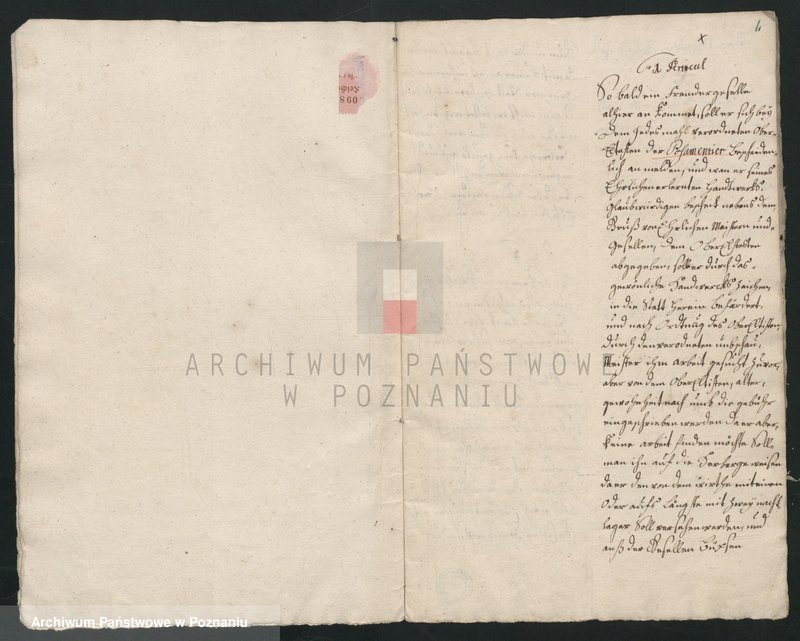 4
x
1 Articul
So bald ein Frembder geselle
alhier an kommet, soll er sich bey
dem jedes mahl verordneten Ober-
Eltesten der Posamentier bescheiden-
lich an melden, und wan er seines
Ehrlichen erlernten Handtwercks,
glaubwürdigen bescheit nebens dem
Gruß von Ehrlichen Meistern und
Gesellen, dem OberEltesten
abgegeben, soll er durch das
gewönliche Handtwercks zeichen,
in die Statt herein befördert,
und nach Ordtnug des OberEltisten,
durch den verordneten umbschau,
Meister ihm arbeit gesucht zuvor,
aber von dem OberEltisten, alter,
gewohnheit nach umb die gebühr
eingeschrieben werden da er aber
keine arbeit finden möchte Soll
man ihn auf die Herberge weisen
da er den von dem wirthe mit einen
Oder aufs Längste mit zwey nacht
lager Soll versehen werden, und
auß der Gesellen Büxsen
098
ARCHIWUM PAŃSTWOWE
W POZNANIU
Archiwum Państwowe w Poznaniu